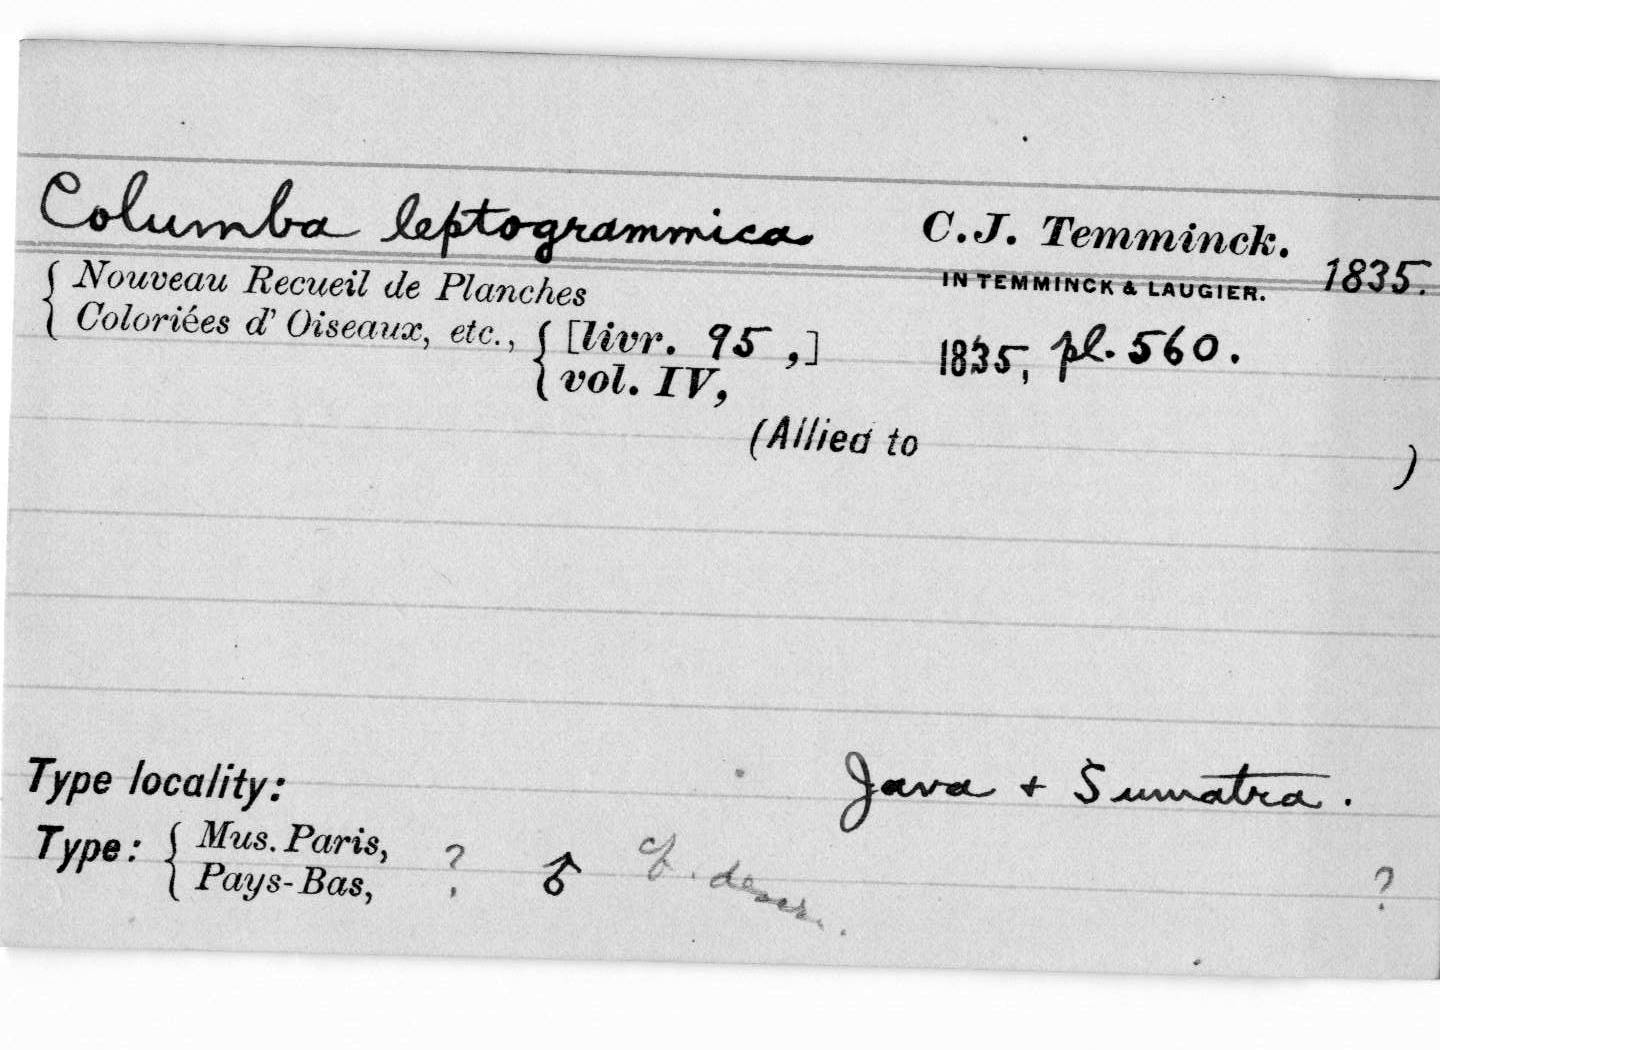 Columba leptogrammica C.J. Temminck.
IN TEMMINCK & LAUGIER. 1835.
{ Nouveau Recueil de Planches
{ Coloriées d' Oiseaux, etc., { [livr. 95 ,] 1835, pl. 560.
{ vol. IV,
(Allied to )
Type locality: Java + Sumatra.
Type: { Mus. Paris,
{ Pays-Bas, ? ♂ cf. descr. ?